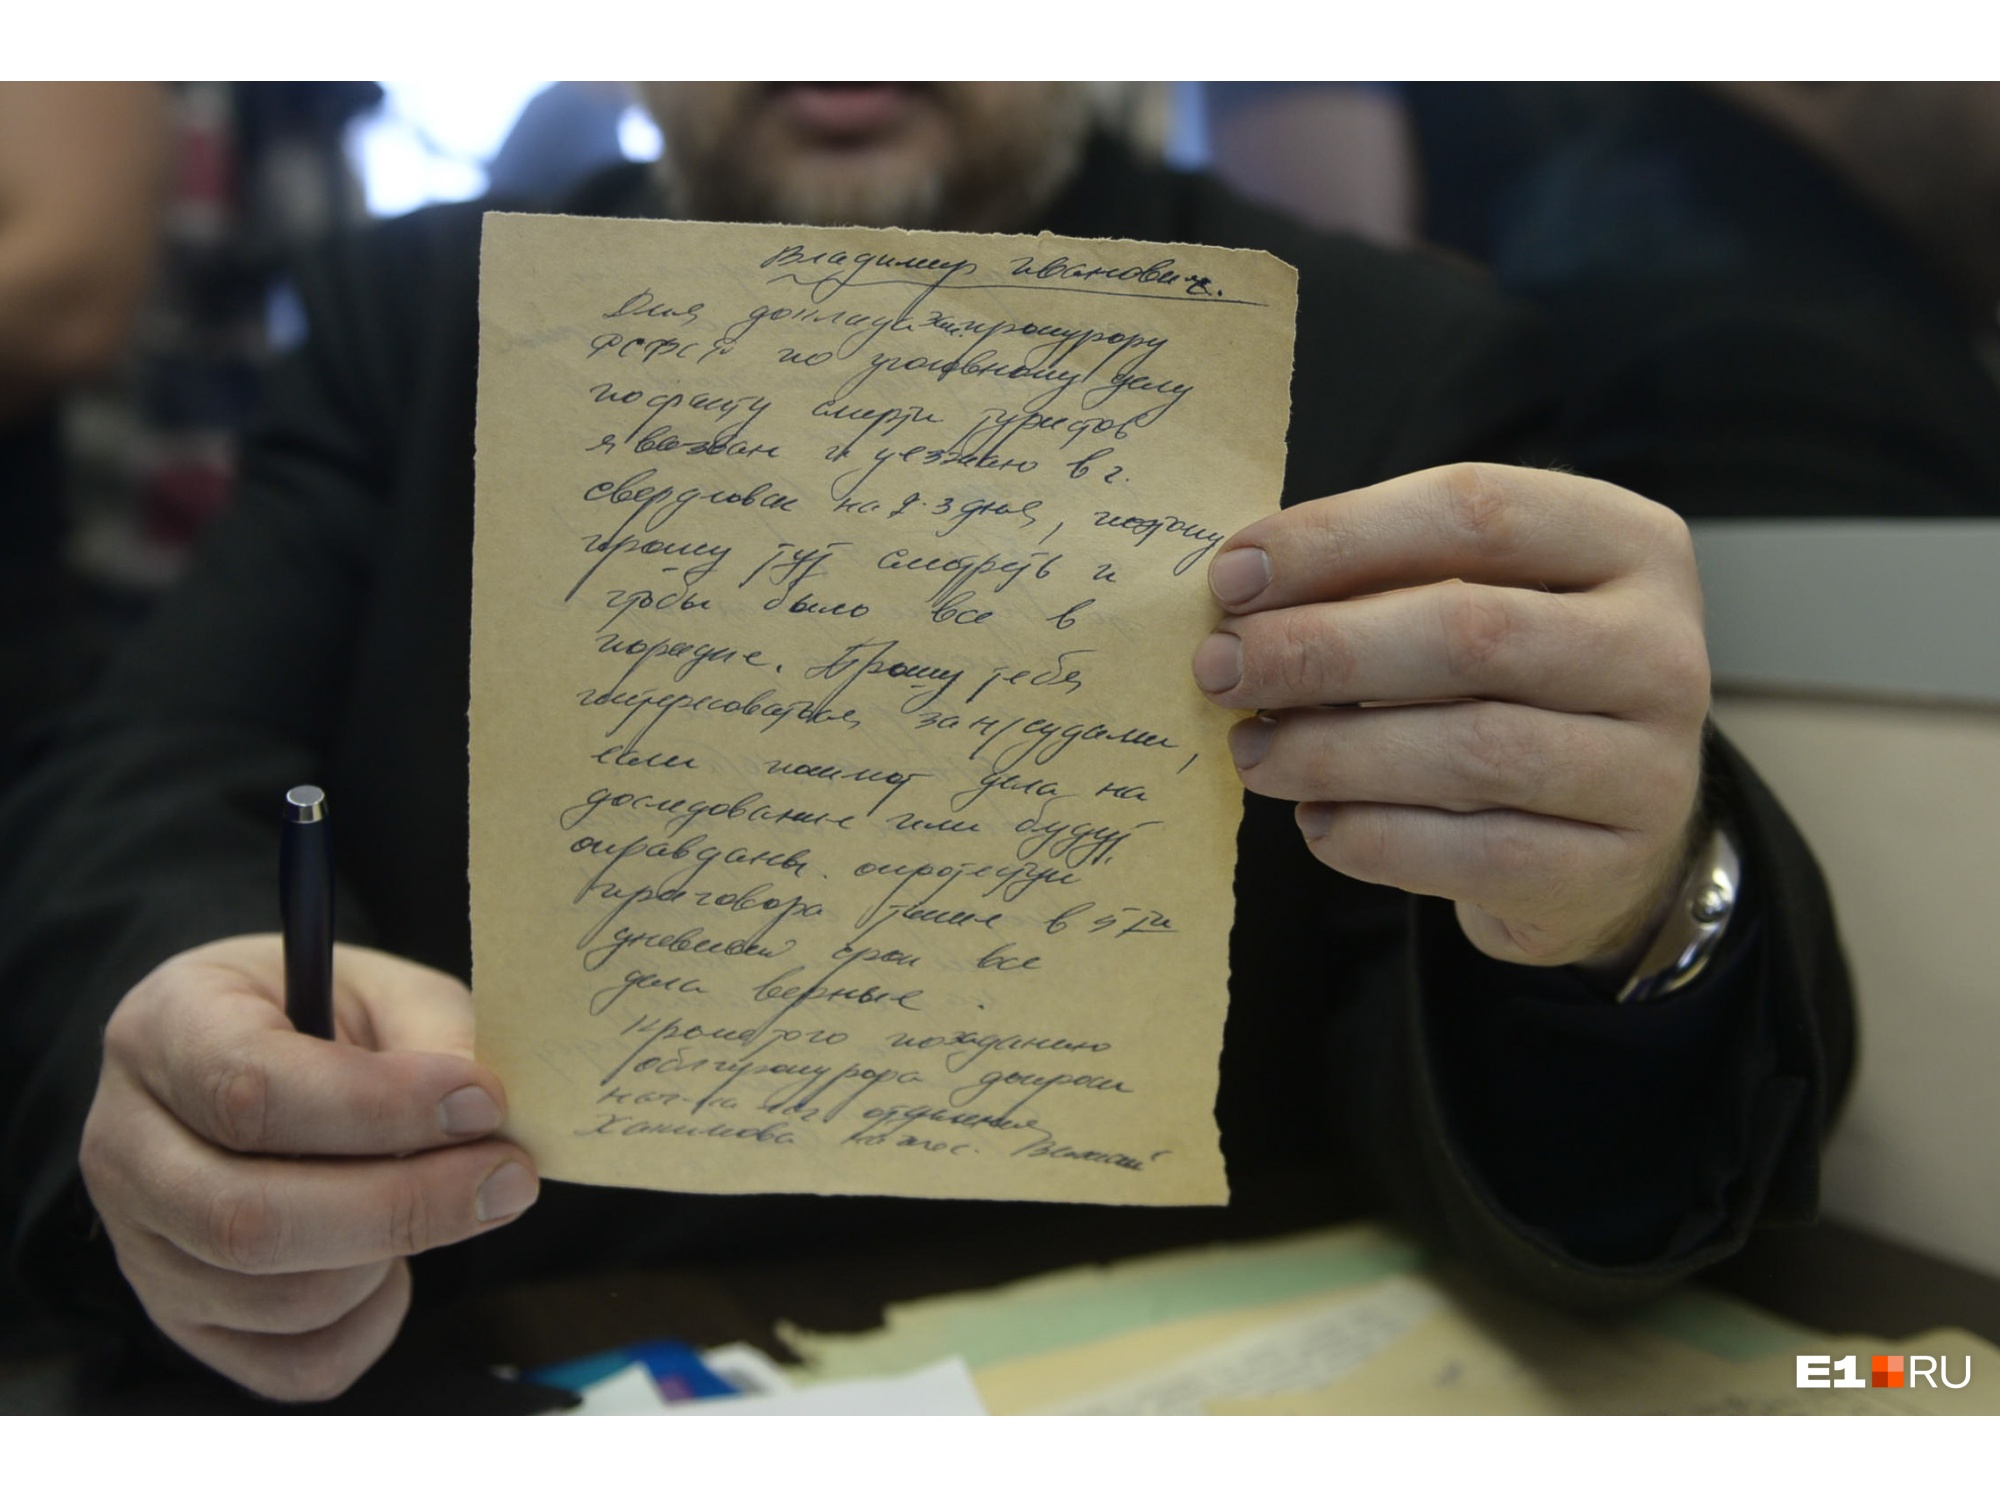 Владимир Иванович.
Для доклада Зам. прокурору
РСФСР по уголовному делу
по факту смерти туристов
я вызван и уезжаю в г.
Свердловск на 2-3 дня, поэтому
прошу тут смотреть и
чтобы было все в
порядке. Прошу тебя
интересоваться за н/судами,
если пошлют дела на
доследование или будут
оправданы. опротестуй
приговора также в 5ти
дневный срок все
дела верные.
Кроме того по заданию
облпрокурора допроси
нач-ка отделения
Хакимова
E1.RU